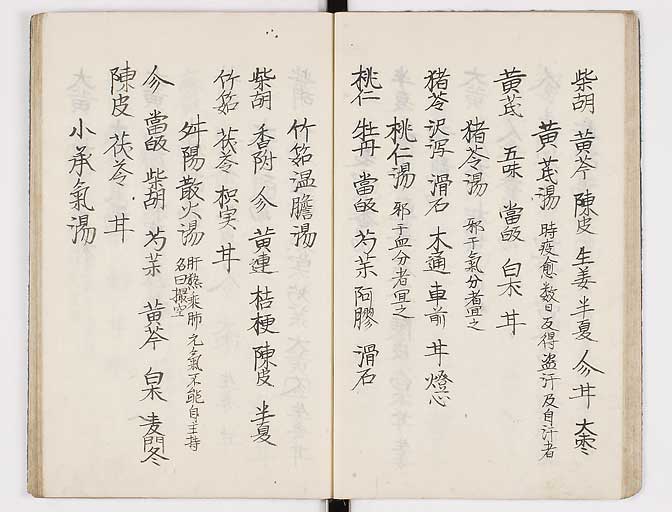 柴胡 黄芩 陳皮 生姜 半夏 参 甘 大棗
黄茋湯 時疫愈数日及得盗汗及自汗者
黄茋 五味 當皈 白朮 甘
猪苓湯 邪干氣分者冝之
猪苓 沢泻 滑石 木通 車前 甘 燈心
桃仁湯 邪干血分者冝之
桃仁 牡丹 當皈 芍薬 阿膠 滑石
竹筎温膽湯
柴胡 香附 参 黄連 桔梗 陳皮 半夏
竹筎 茯苓 枳実 甘
舛陽散火湯 肝熱乗肺元氣不能自主持
名曰撮空
参 當皈 柴胡 芍薬 黄芩 白朮 麦門冬
陳皮 茯苓 甘
小承氣湯